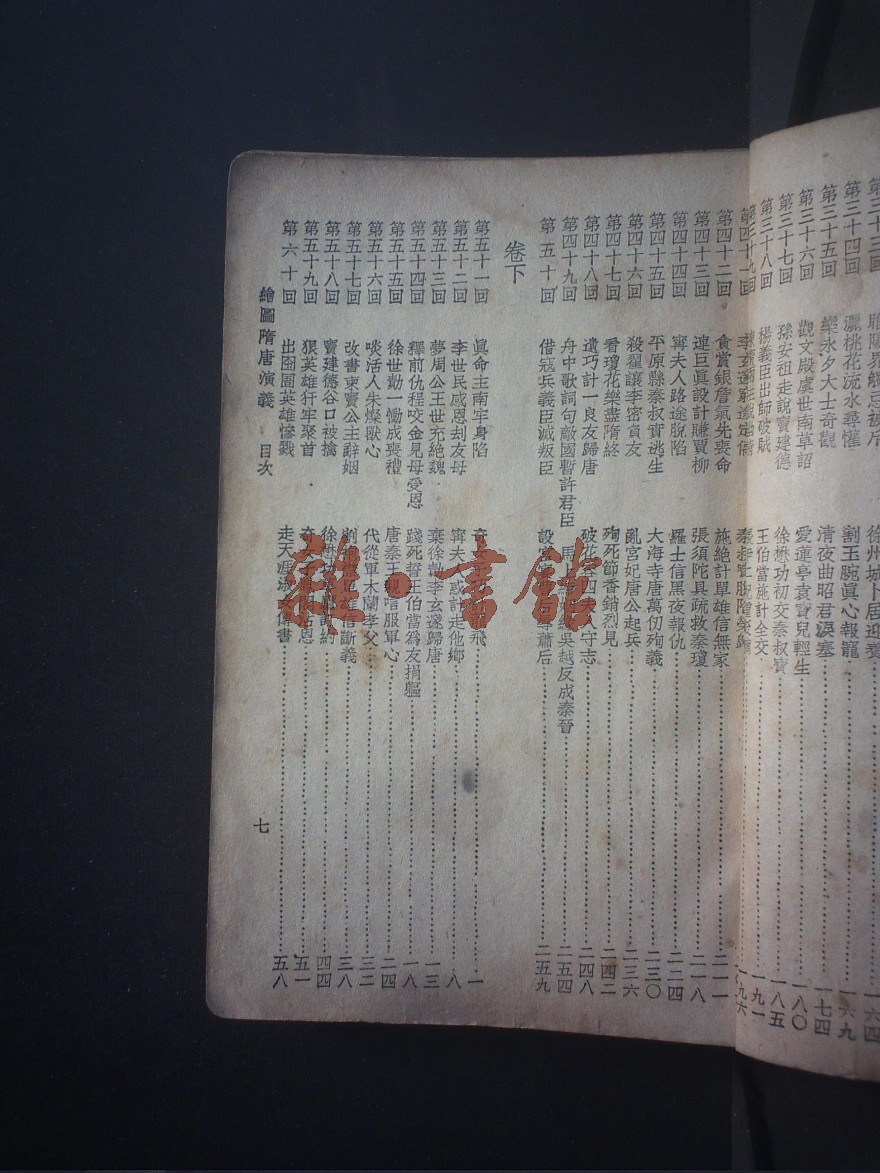 第三十四回 灑桃花流水尋懽 割玉腕眞心報寵 一六九
第三十五回 樂永夕大士奇觀 清夜曲昭君淚塞 一七四
第三十六回 觀文殿虞世南草詔 愛蓮亭袁寶兒輕生 一八〇
第三十七回 孫安祖走說竇建德 徐懋功初交秦叔寶 一八五
第三十八回 楊義臣出師破賊 王伯當施計全交 一九一
第四十二回 貪賞銀詹氣先喪命 施絶計單雄信無家 二一一
第四十三回 連巨眞設計賺賈柳 張須陀具疏救秦瓊 二一八
第四十四回 寗夫人路途脫陷 羅士信黑夜報仇 二二四
第四十五回 平原縣秦叔寶逃生 大海寺唐萬仞殉義 二三〇
第四十六回 殺翟讓李密負友 亂宮妃唐公起兵 二三六
第四十七回 看瓊花樂盡隋終 殉死節香銷烈見 二四二
第四十八回 遺巧計一良友歸唐 破花 四夫人守志 二四八
第四十九回 舟中歌詞句敵國暫許君臣 馬 吳越反成秦晉 二五四
第五十回 借寇兵義臣滅叛臣 設 蕭后 二五九
卷下
第五十一回 眞命主南牢身陷 飛 一
第五十二回 李世民感恩刦友母 寗夫人惑計走他鄉 八
第五十三回 夢周公王世充絶魏 棄徐勣李玄邃歸唐 一三
第五十四回 釋前仇程咬金見母受恩 踐死誓王伯當爲友捐軀 一八
第五十五回 徐世勣一慟成喪禮 唐秦王親唁服軍心 二四
第五十六回 啖活人朱燦獸心 代從軍木蘭孝父 三二
第五十七回 改書柬竇公主辭姻 劉 單雄信斷義 三八
第五十八回 竇建德谷口被擒 徐懋功 約 四四
第五十九回 狠英雄犴牢聚首 恩 五一
第六十回 出囹圄英雄慘戮 走天涯淑女傳書 五八
繪圖隋唐演義 目次
七
雜·書館